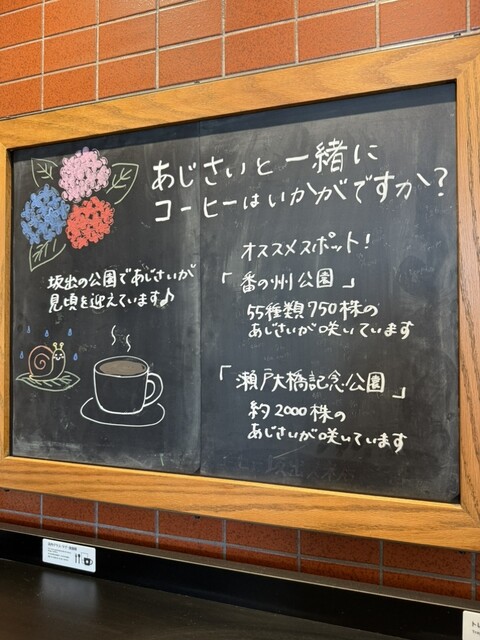 あじさいと一緒に
コーヒーはいかがですか?
坂出の公園であじさいが
見頃を迎えています♪
オススメスポット!
「番の州公園」
55種類750株の
あじさいが咲いています
「瀬戸大橋記念公園」
約2000株の
あじさいが咲いています